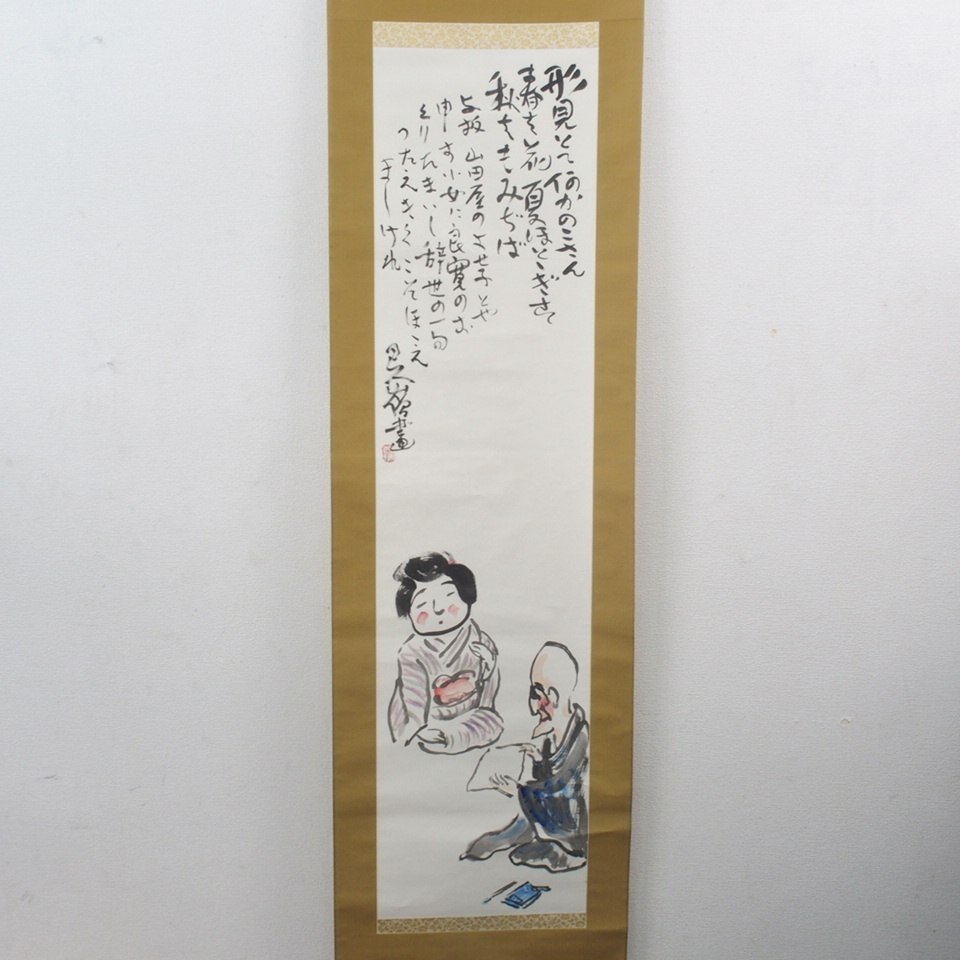 形見とて何かのこさん
春は花夏ほとゝぎさて
秋はもみぢば
与板山田屋のよせ子とや
申す小女に良寛のお
くりたまいし辞世の一句
つたえきくこそほゝえ
ましけれ
画